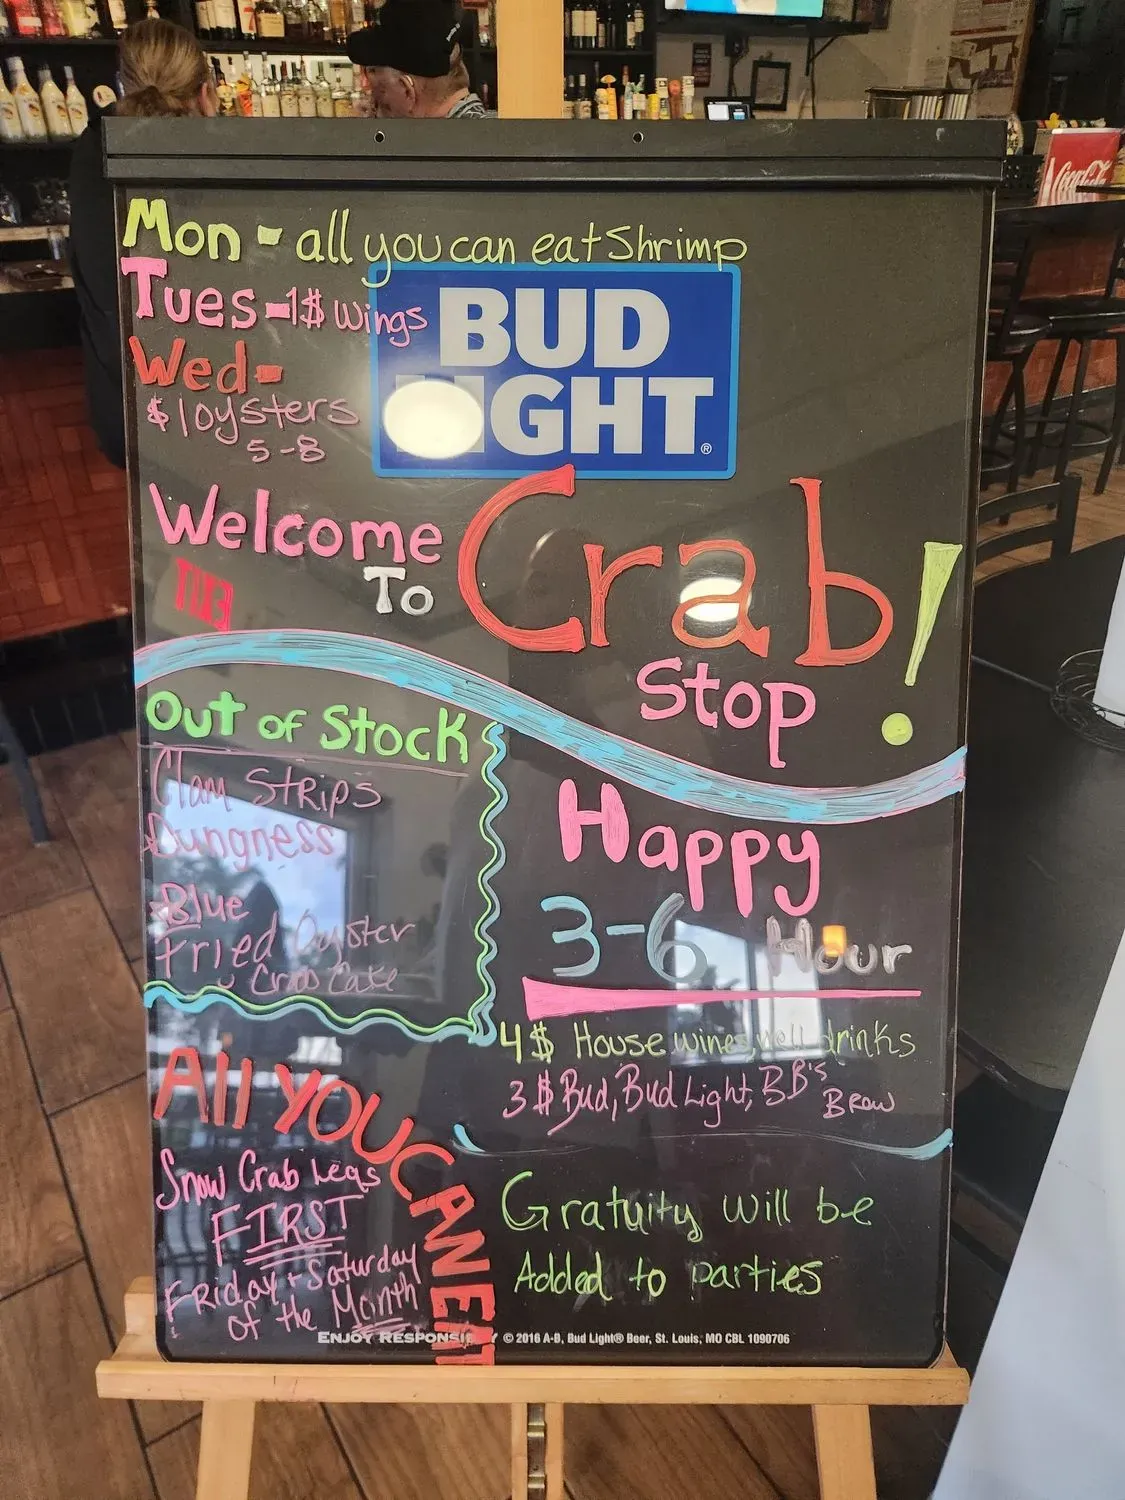 Mon - all you can eat Shrimp
Tues - 1$ wings
Wed -
$1 oysters
5-8
BUD
LIGHT®
Welcome
To
Crab!
Stop
Out of Stock
Clam Strips
Dungness
Blue
Fried Oyster
Crab Cake
Happy
3-6 Hour
4$ House wines, well drinks
3$ Bud, Bud Light, BB's Brew
All YOU CAN EAT
Snow Crab Legs
FIRST
Friday + Saturday
of the Month
Gratuity will be
Added to parties
ENJOY RESPONSIBLY © 2016 A-B, Bud Light® Beer, St. Louis, MO CBL 1090706
Coca-Cola